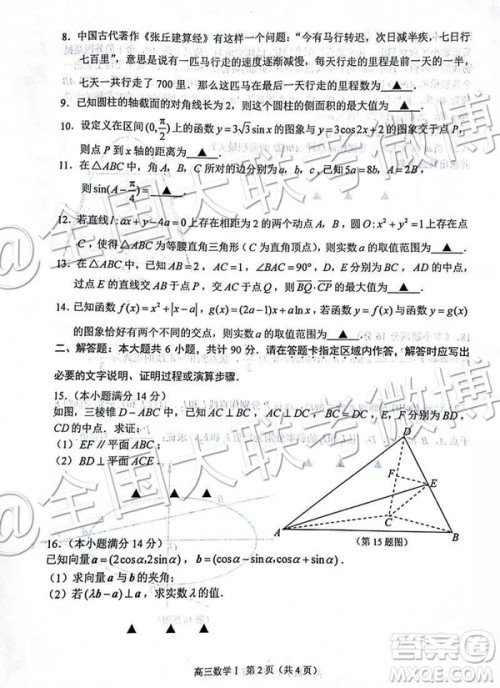 8．中国古代著作《张丘建算经》有这样一个问题：“今有马行转迟，次日减半疾，七日行
七百里”，意思是说有一匹马行走的速度逐渐减慢，每天行走的里程是前一天的一半，
七天一共行走了 700 里．那么这匹马在最后一天行走的里程数为 ▲ ．
9．已知圆柱的轴截面的对角线长为 2，则这个圆柱的侧面积的最大值为 ▲ ．
10．设定义在区间(0, π/2)上的函数 y=3√3 sin x 的图象与 y=3cos2x+2 的图象交于点 P，
则点 P 到 x 轴的距离为 ▲ ．
11．在△ABC 中，角 A，B，C 所对的边分别为 a，b，c，已知 5a=8b，A=2B，
则 sin(A−π/4)= ▲ ．
12．若直线 l:ax+y−4a=0 上存在相距为 2 的两个动点 A，B，圆 O:x²+y²=1 上存在点
C，使得△ABC 为等腰直角三角形（C 为直角顶点），则实数 a 的取值范围为 ▲ ．
13．在△ABC 中，已知 AB=2，AC=1，∠BAC=90°，D，E 分别为 BC，AD 的中点，
过点 E 的直线交 AB 于点 P，交 AC 于点 Q，则 BQ·CP 的最大值为 ▲ ．
14．已知函数 f(x)=x²+|x−a|，g(x)=(2a−1)x+a ln x，若函数 y=f(x) 与函数 y=g(x)
的图象恰好有两个不同的交点，则实数 a 的取值范围为 ▲ ．
二、解答题：本大题共 6 小题，共计 90 分．请在答题卡指定区域内作答，解答时应写出
必要的文字说明、证明过程或演算步骤．
15．（本小题满分 14 分）
如图，三棱锥 D−ABC 中，已知 AC⊥BC，AC⊥DC，BC=DC，E，F 分别为 BD，
CD 的中点．求证：
（1）EF∥平面 ABC；
（2）BD⊥平面 ACE．
▲ ▲ ▲
D
F
E
C
A
B
（第 15 题图）
16．（本小题满分 14 分）
已知向量 a=(2cosα, 2sinα)，b=(cosα−sinα, cosα+sinα)．
（1）求向量 a 与 b 的夹角；
（2）若 (λb−a)⊥a，求实数 λ 的值．
▲ ▲ ▲
高三数学Ⅰ 第 2 页（共 4 页）
@全国大联考微博
@全国大联考微博